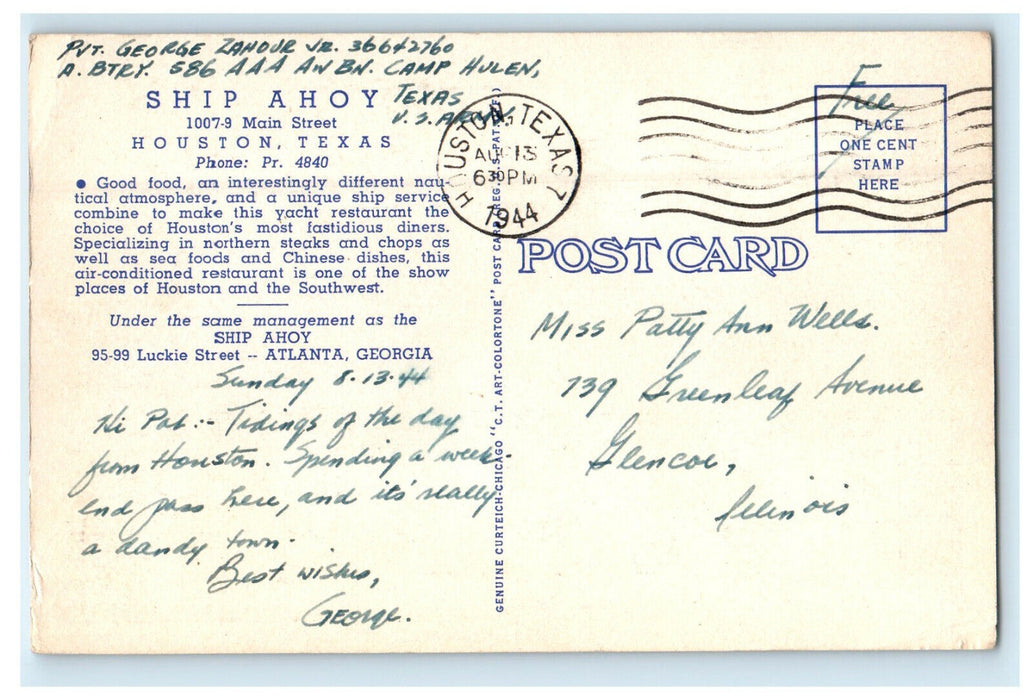 PVT. GEORGE ZAHOUR JR. 36642760
A. BTRY. 586 AAA AW BN. CAMP HULEN,
TEXAS
U.S. ARMY.
SHIP AHOY
1007-9 Main Street
HOUSTON, TEXAS
Phone: Pr. 4840
● Good food, an interestingly different nau-
tical atmosphere, and a unique ship service
combine to make this yacht restaurant the
choice of Houston's most fastidious diners.
Specializing in northern steaks and chops as
well as sea foods and Chinese dishes, this
air-conditioned restaurant is one of the show
places of Houston and the Southwest.
Under the same management as the
SHIP AHOY
95-99 Luckie Street -- ATLANTA, GEORGIA
Sunday 8-13-44
Hi Pat:- Tidings of the day
from Houston. Spending a week-
end pass here, and it's really
a dandy town.
Best wishes,
George.
GENUINE CURTEICH-CHICAGO "C.T. ART-COLORTONE" POST CARD (REG. U.S. PAT. OFF.)
HOUSTON, TEXAS 7
AUG 13
6 30 PM
1944
Free
PLACE
ONE CENT
STAMP
HERE
POST CARD
Miss Patty Ann Wells.
739 Greenleaf Avenue
Glencoe,
Illinois